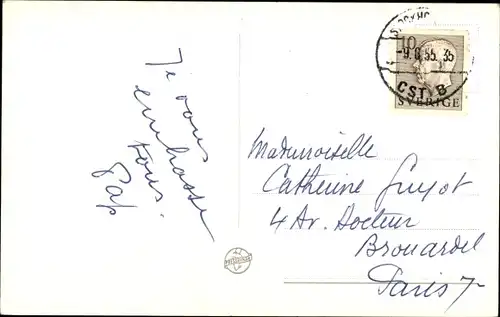 Je vous
embrasse
tous.
Pap
STOCKHO
10
-9.8.55.35
CST B
SVERIGE
Mademoiselle
Catherine Guyot
4 Av. Docteur
Brouardel
Paris 7